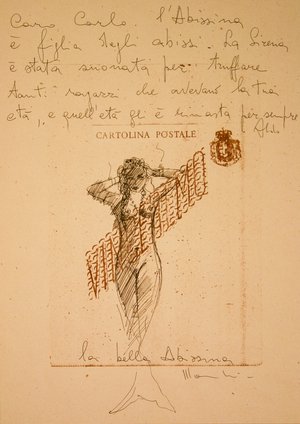 Caro Carlo. l'Abissina
è figlia degli abissi. La Sirena
è stata suonata per truffare
tanti ragazzi che avevano la tua
età, e quell'età gli è rimasta per sempre
Aldo
CARTOLINA POSTALE
la bella Abissina